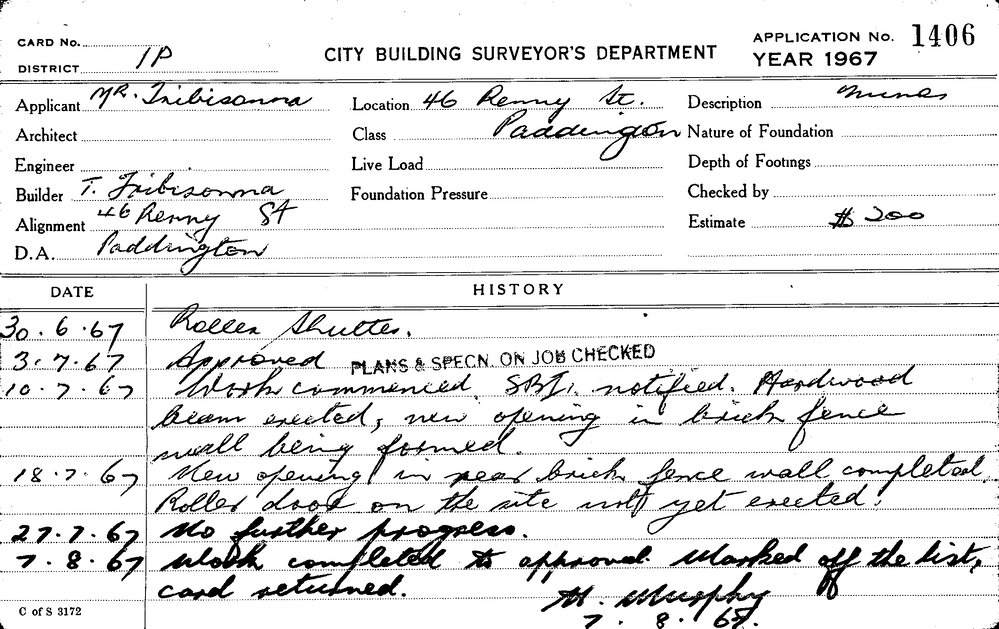 CARD No.
DISTRICT 1P
CITY BUILDING SURVEYOR'S DEPARTMENT
APPLICATION No. 1406
YEAR 1967
Applicant Mr. Tribisonna
Architect
Engineer
Builder T. Tribisonna
Alignment 46 Renny St
D.A. Paddington
Location 46 Renny St.
Class Paddington
Live Load
Foundation Pressure
Description Minor
Nature of Foundation
Depth of Footings
Checked by
Estimate $ 200
DATE HISTORY
30.6.67 Roller Shutter.
3.7.67 Approved PLANS & SPECN. ON JOB CHECKED
10.7.67 Work commenced. notified. Hardwood
beam erected, new opening in brick fence
wall being formed.
18.7.67 New opening in rear brick fence wall completed.
Roller door on the site not yet erected.
27.7.67 No further progress.
7.8.67 Work completed to approval. Marked off the list,
card returned.
M. Murphy
7.8.67.
C of S 3172